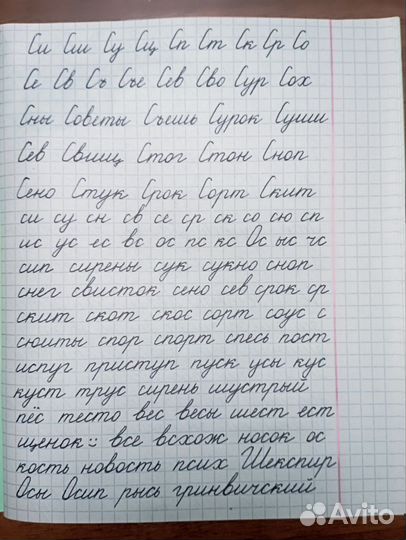 Си Сш Су Сщ Сп Ст Ск Ср Со
Се Св Съ Съе Сев Сво Сур Сох
Сны Советы Съешь Сурок Суши
Сев Свищ Стог Стон Сноп
Сено Стук Срок Сорт Скит
си су сн св се ср ск со сю сп
ис ус ес вс ос пс кс Ос ыс чс
сип сирены сук сукно сноп
снег свисток сено сев срок ср
скит скот скос сорт соус с
сюиты спор спорт спесь пост
испуг приступ пуск усы кус
куст трус сирень шустрый
пёс тесто вес весы шест ест
щенок все всхож носок ос
кость новость псих Шекспир
Осы Осип рысь гринвичский
Avito